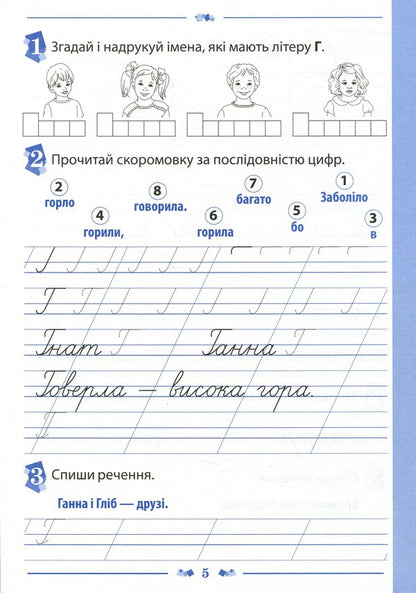 1 Згадай і надрукуй імена, які мають літеру Г.
2 Прочитай скоромовку за послідовністю цифр.
2 8 7 1
горло говорила. багато Заболіло
4 6 5 3
горили, горила бо в
Г
Гнат Г Ганна Г
Говерла — висока гора.
Г
3 Спиши речення.
Ганна і Гліб — друзі.
Г
5